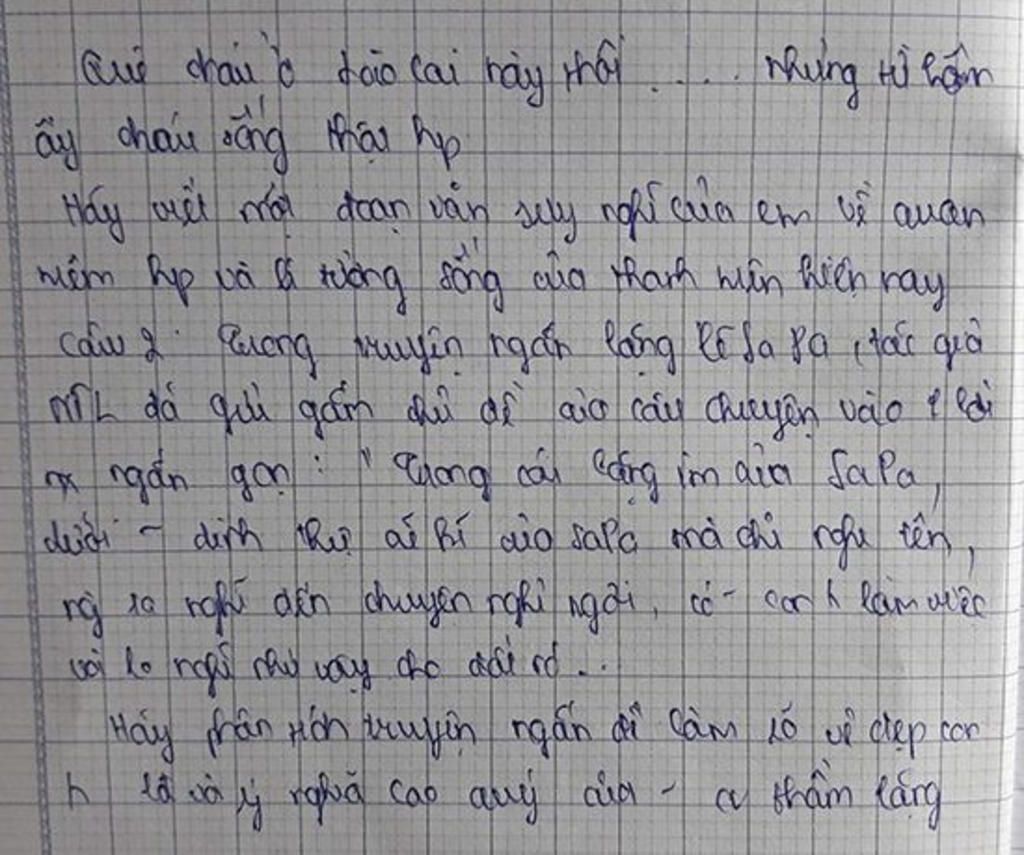 Quê cháu ở Lào Cai này thôi .... nhưng từ hôm
ấy cháu sống thật hp
Hãy viết một đoạn văn suy nghĩ của em về quan
niệm hp và lí tưởng sống của thanh niên hiện nay
Câu 2: Trong truyện ngắn lặng lẽ Sa Pa, tác giả
NTL đã gửi gắm chủ đề của câu chuyện vào 1 lời
ngắn gọn: "Trong cái lặng im của SaPa,
dưới - dinh thự cũ kĩ của SaPa mà chỉ nghe tên,
ng ta nghĩ đến chuyện nghỉ ngơi, có - con h làm việc
và lo nghĩ như vậy cho đất nc...
Hãy phân tích truyện ngắn để làm rõ vẻ đẹp con
h và ý nghĩa cao quý của - thầm lặng